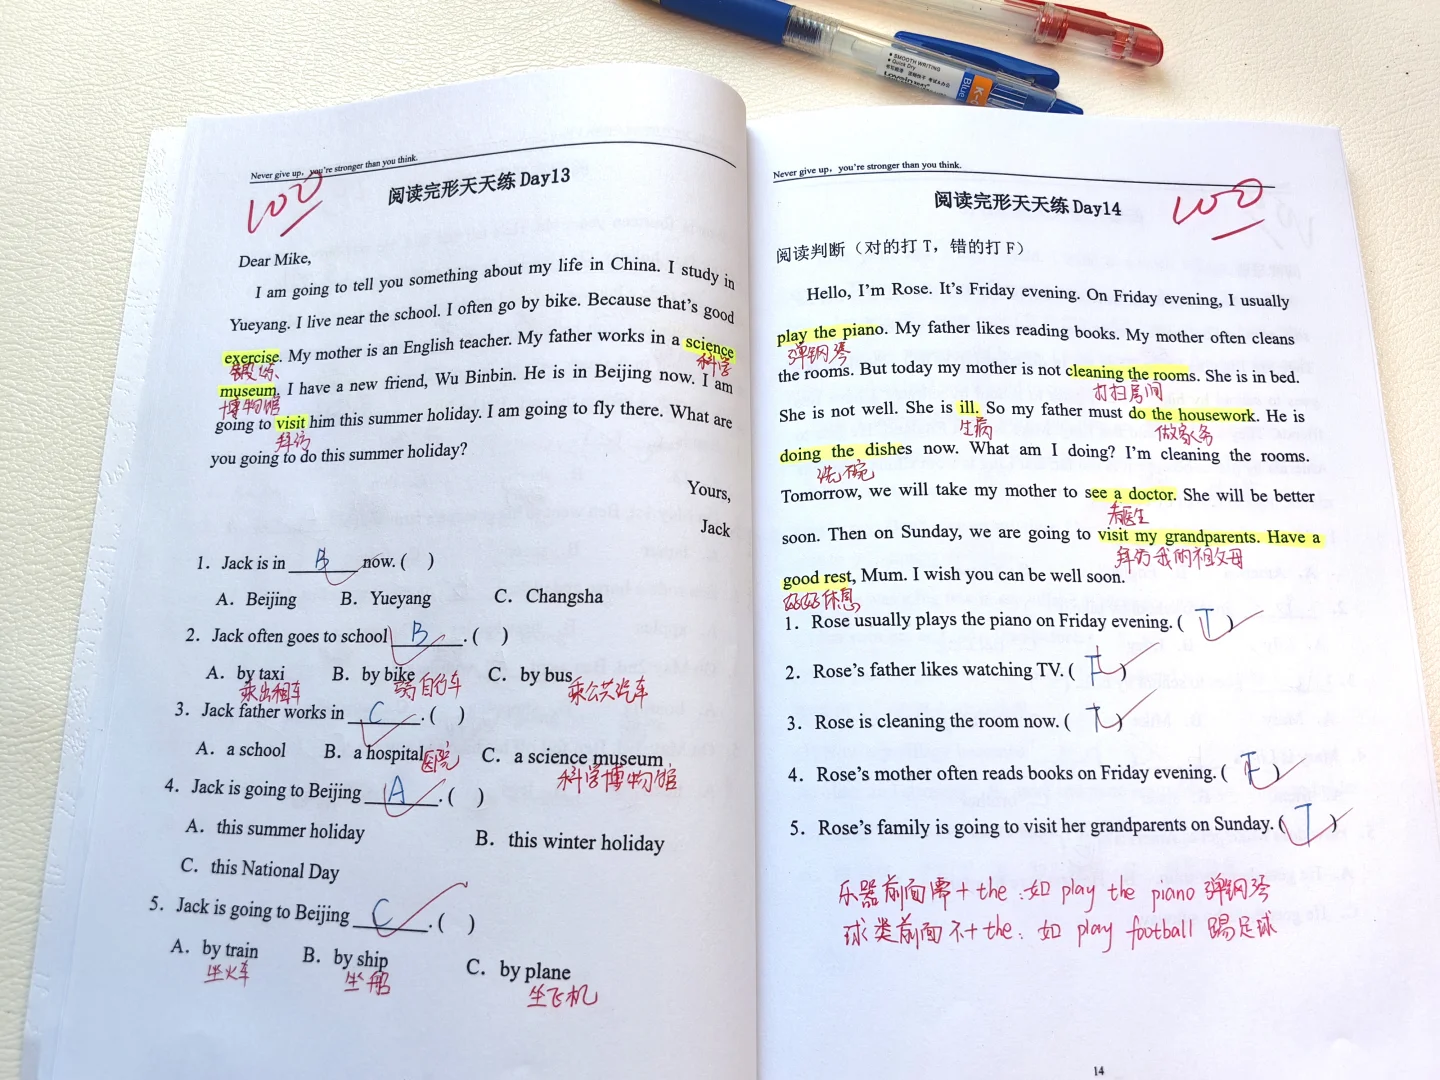 SMOOTH WRITING
Quick Dry
Blue
Never give up, you're stronger than you think.
100
阅读完形天天练Day13
Dear Mike,
I am going to tell you something about my life in China. I study in
Yueyang. I live near the school. I often go by bike. Because that's good
exercise. My mother is an English teacher. My father works in a science
锻炼 科学
museum. I have a new friend, Wu Binbin. He is in Beijing now. I am
博物馆
going to visit him this summer holiday. I am going to fly there. What are
拜访
you going to do this summer holiday?
Yours,
Jack
1. Jack is in B now. ( )
A. Beijing B. Yueyang C. Changsha
2. Jack often goes to school B . ( )
A. by taxi B. by bike C. by bus
乘出租车 骑自行车 乘公共汽车
3. Jack father works in C . ( )
A. a school B. a hospital 医院 C. a science museum
科学博物馆
4. Jack is going to Beijing A . ( )
A. this summer holiday B. this winter holiday
C. this National Day
5. Jack is going to Beijing C . ( )
A. by train B. by ship C. by plane
坐火车 坐船 坐飞机
Never give up, you're stronger than you think.
阅读完形天天练Day14
100
阅读判断（对的打 T，错的打 F）
Hello, I'm Rose. It's Friday evening. On Friday evening, I usually
play the piano. My father likes reading books. My mother often cleans
弹钢琴
the rooms. But today my mother is not cleaning the rooms. She is in bed.
打扫房间
She is not well. She is ill. So my father must do the housework. He is
生病 做家务
doing the dishes now. What am I doing? I'm cleaning the rooms.
洗碗
Tomorrow, we will take my mother to see a doctor. She will be better
看医生
soon. Then on Sunday, we are going to visit my grandparents. Have a
拜访我的祖父母
good rest, Mum. I wish you can be well soon.
好好休息
1. Rose usually plays the piano on Friday evening. ( T )
2. Rose's father likes watching TV. ( F )
3. Rose is cleaning the room now. ( T )
4. Rose's mother often reads books on Friday evening. ( F )
5. Rose's family is going to visit her grandparents on Sunday. ( T )
乐器前面需+the:如 play the piano 弹钢琴
球类前面不+the: 如 play football 踢足球
14